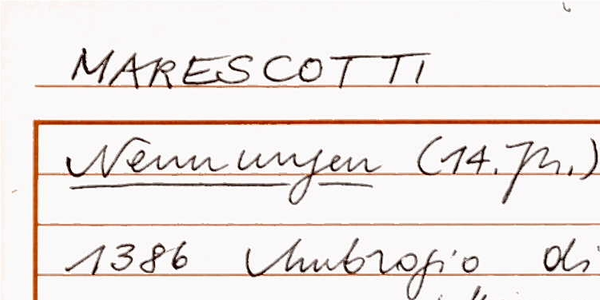 MARESCOTTI
Nennungen (14. Jh.)
1386 Ambrogio di